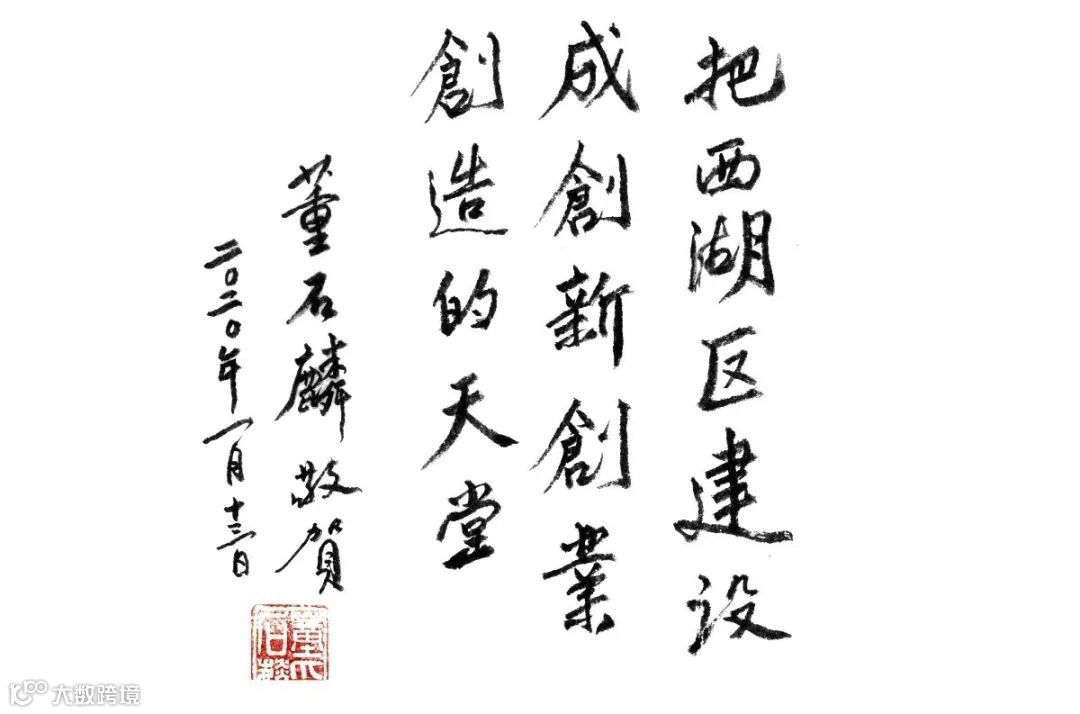 把西湖区建设
成創新創業
創造的天堂
董石麟敬賀
二〇二〇年一月十三日
董石麟
大数跨境